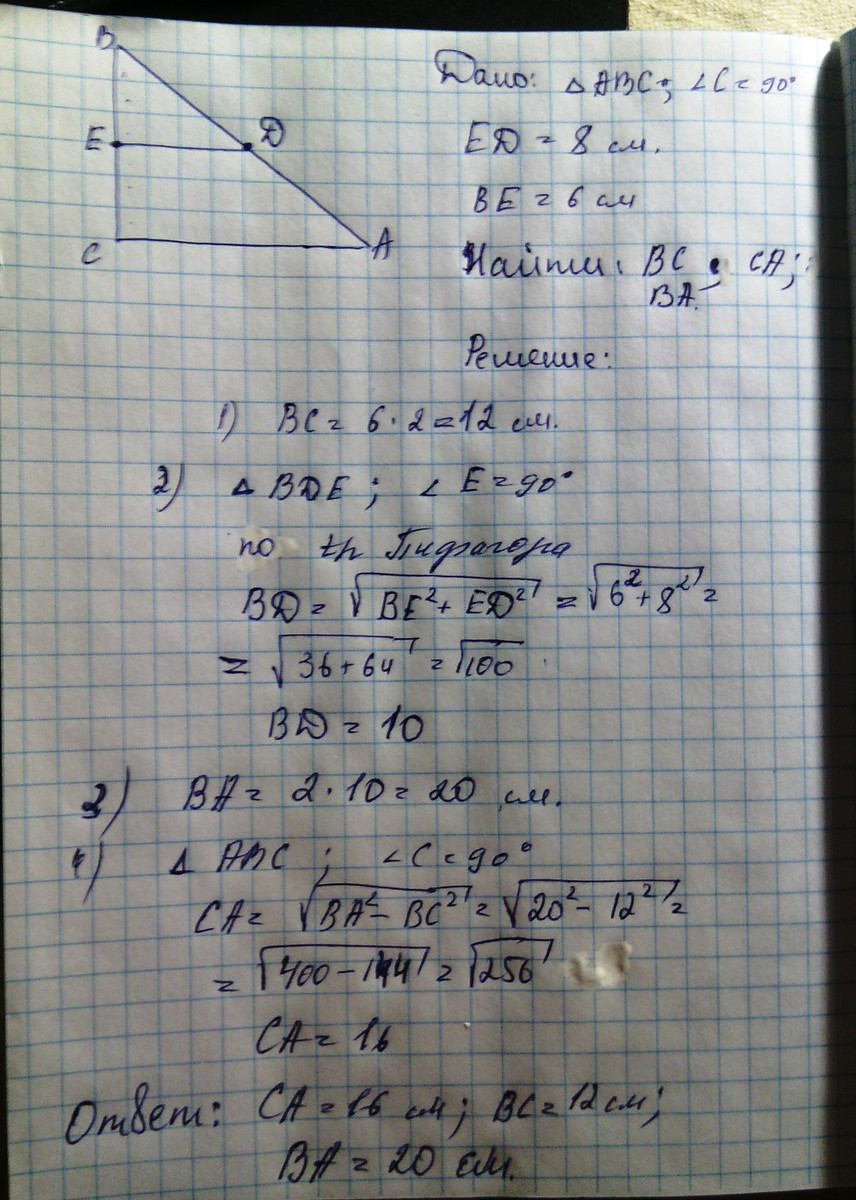 B
E
D
C
A
Дано: △ABC; ∠C = 90°
ED = 8 см.
BE = 6 см
Найти: BC; CA;
BA.
Решение:
1) BC = 6 · 2 = 12 см.
2) △ BDE ; ∠ E = 90°
по th Пифагора
BD = √(BE² + ED²) = √(6² + 8²) =
= √(36 + 64) = √100
BD = 10
3) BA = 2 · 10 = 20 см.
4) △ ABC ; ∠C = 90°
CA = √(BA² - BC²) = √(20² - 12²) =
= √(400 - 144) = √256
CA = 16
Ответ: CA = 16 см; BC = 12 см;
BA = 20 см.